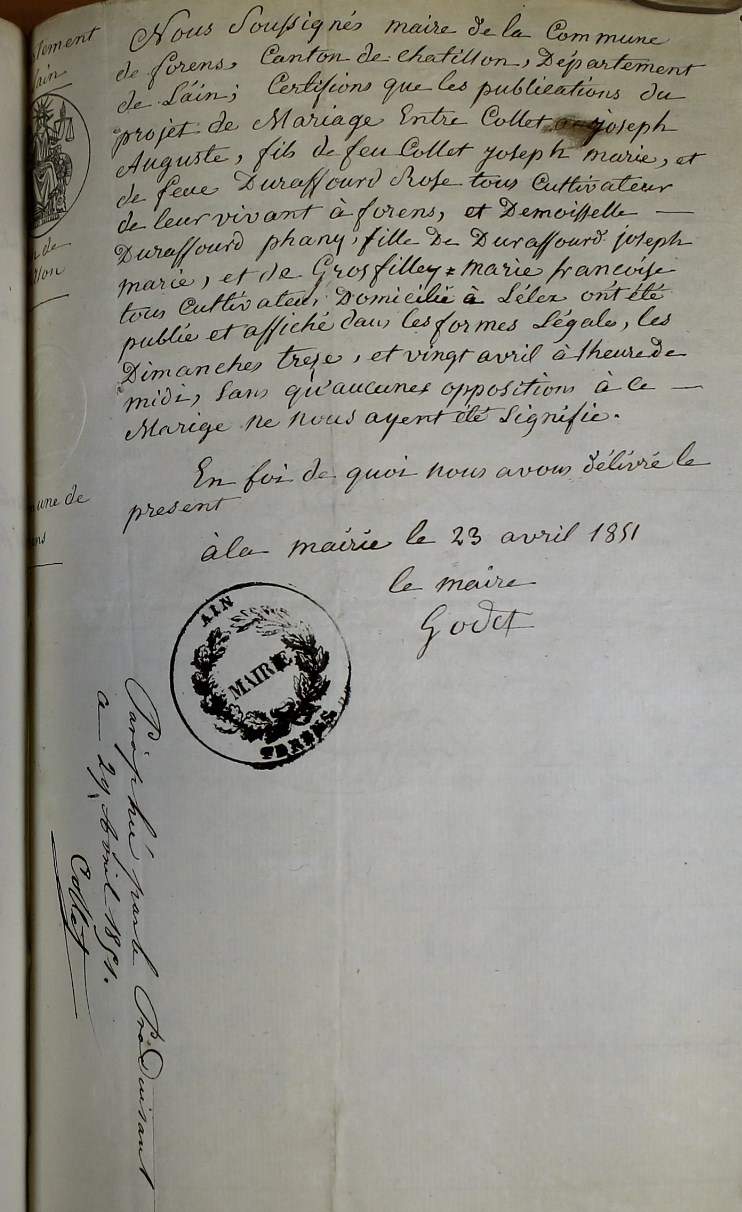 tement
lain
n de
llon
une de
ens
Nous Soussignés maire de la Commune
de forens, Canton de chatillon, Département
de Láin; Certifions que les publications du
projet de Mariage Entre Collet joseph
Auguste, fils de feu Collet joseph marie, et
de feue Duraffourd Rose tous Cultivateur
de leur vivant à forens, et Demoisselle —
Duraffourd phany, fille De Duraffourd joseph
marie, et de Grosfilley = marie francoise
tous Cultivateur, Domicilié à Lélex ont été
publié et affiché dans les formes Légale, les
Dimanches treze, et vingt avril à lheure de
midi, Sans qu'aucunes oppositions à ce —
Marige ne nous ayent été Signifie.
En foi de quoi nous avons délivré le
present
à la mairie le 23 avril 1851
le maire
Godet
AIN
MAIRIE
FORENS
Paraphé par le Produisant
a 29 Avril 1851.
Collet